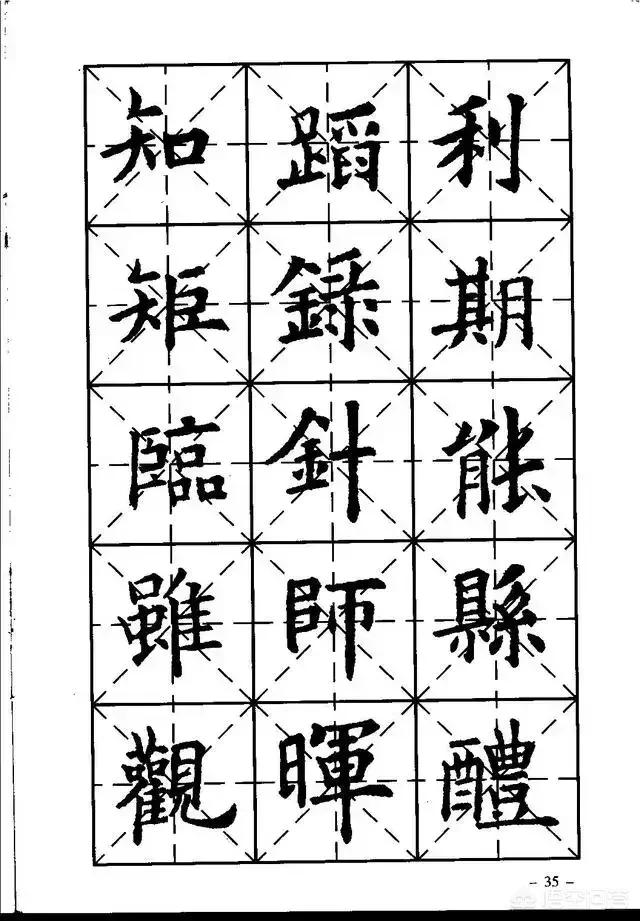 利期能縣醴
蹈錄針師暉
知矩臨雖觀
- 35 -
悟空问答